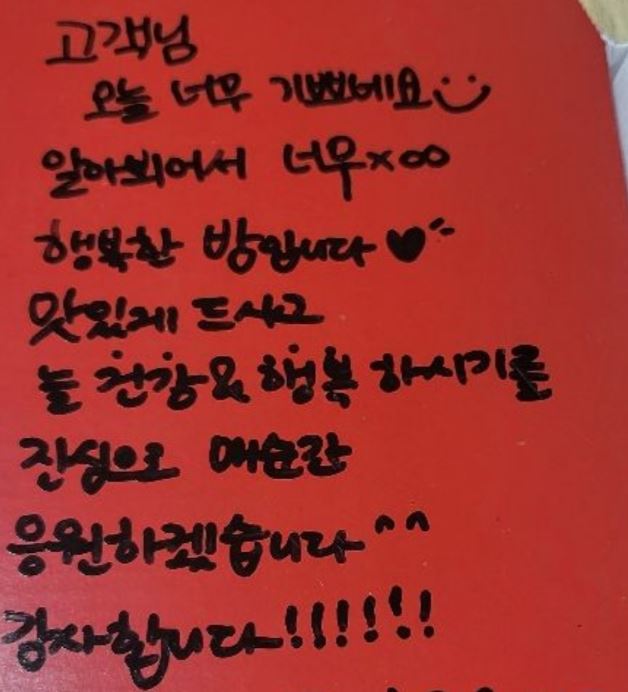 고객님
오늘 너무 기쁘네요 :)
알아뵈어서 너무×∞
행복한 밤입니다 ♥
맛있게 드시고
늘 건강&행복 하시기를
진심으로 매순간
응원하겠습니다^^
감사합니다!!!!!!